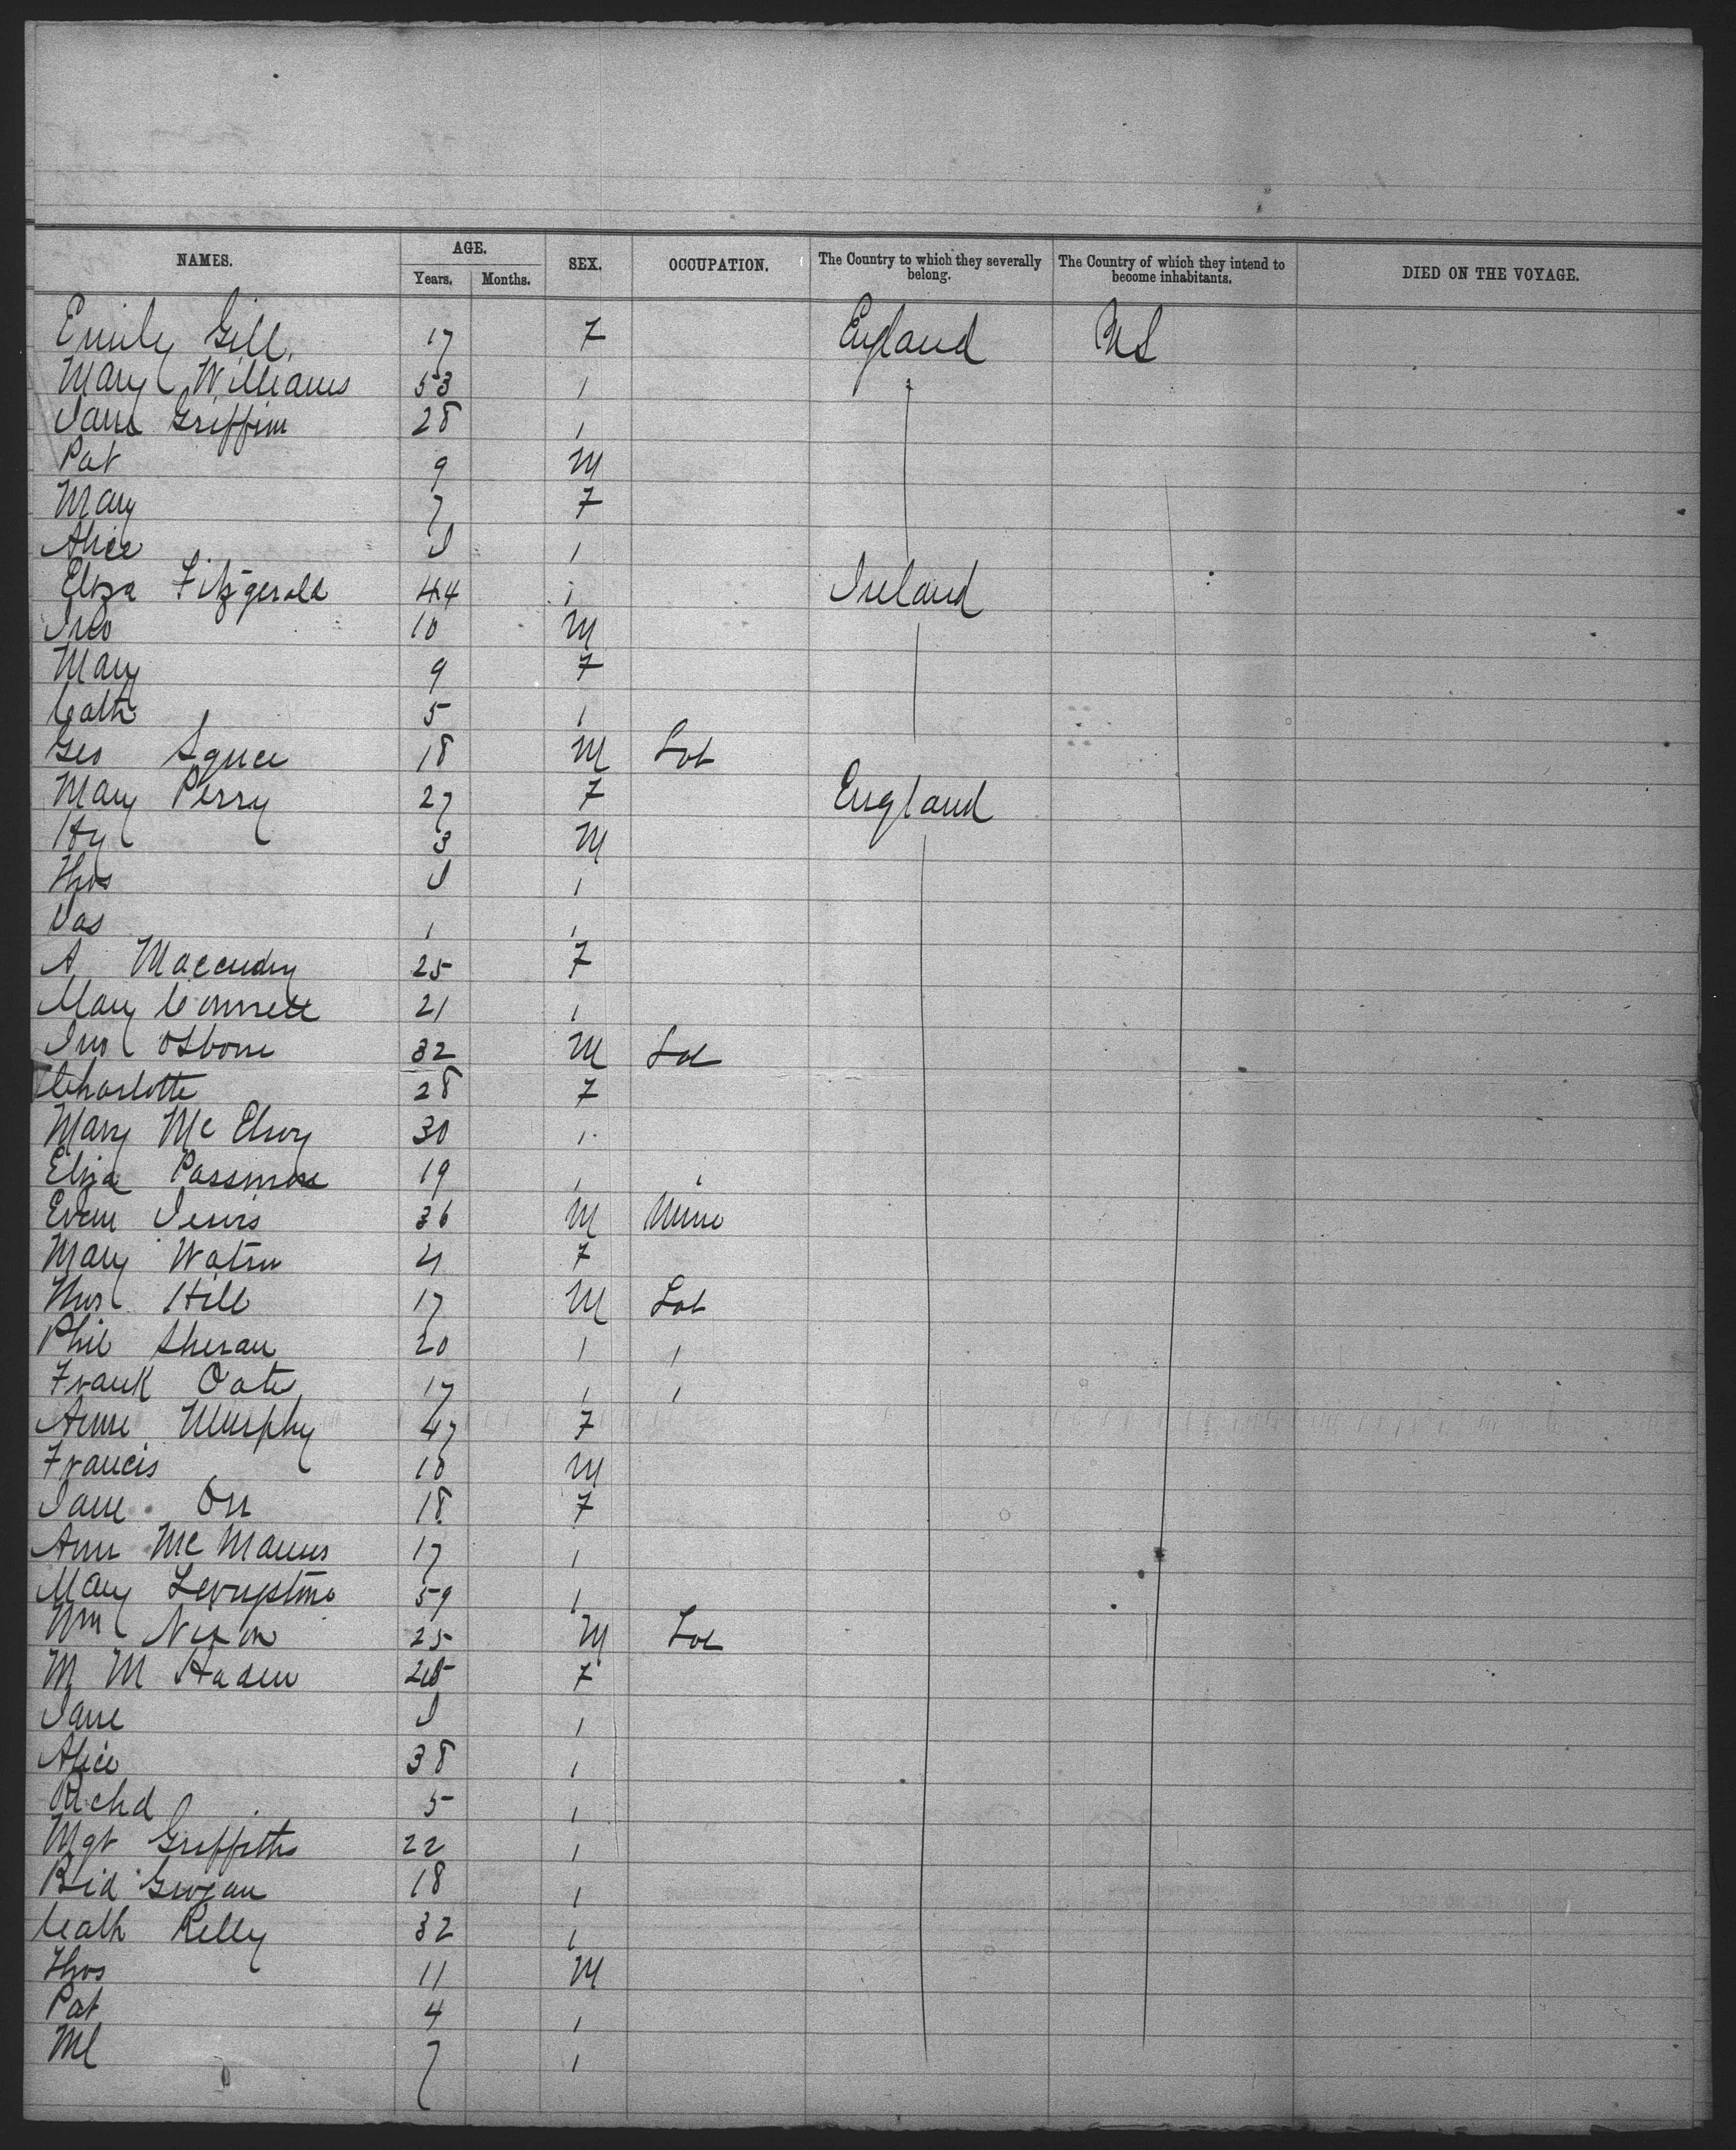 NAMES. AGE. Years. Months. SEX. OCCUPATION. The Country to which they severally belong. The Country of which they intend to become inhabitants. DIED ON THE VOYAGE.
Emily Gill 17 F England US
Mary Williams 53 "
Jane Griffin 28 "
Pat 9 M
Mary 7 F
Alice "
Eliza Fitzgerald 44 " Ireland
Jno 10 M
Mary 9 F
Cath 5 "
Geo Squce 18 M Lab
Mary Perry 27 F England
Hy 3 M
Thos "
Jas 1 "
A 25 F
Mary Connell 21 "
Jno Osborne 32 M Lab
Charlotte 28 F
Mary McElroy 30 "
Eliza Passmore 19 " "
Evan 36 M Mine
Mary Watson F
Thos Hill 17 M Lab
Phil Sheran 20 " "
Frank Oates 17 " "
Anne Murphy 47 F
Francis 10 M
Jane Orr 18 F
Ann McManus 17 "
Mary Levingstone 59 "
Wm Nixon 25 M Lab
M M Haden F
Jane "
Alice 38 "
Richd 5 "
Mgt Griffiths 22 "
Bid Grogan 18 "
Cath Kelly 32 "
Thos 11 M
Pat 4 "
Ml 7 "